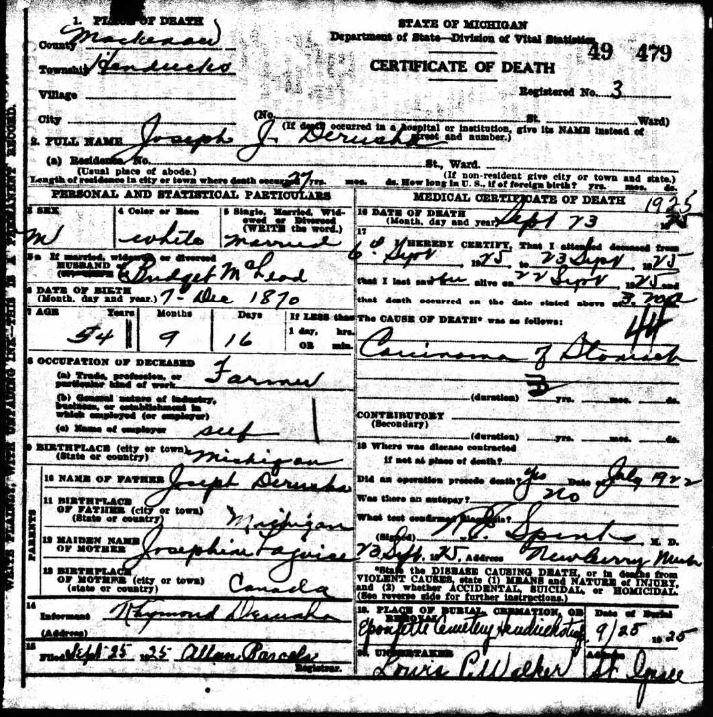 1. PLACE OF DEATH
County Mackinaw
Township Hendricks
Village
City
STATE OF MICHIGAN
Department of State—Division of Vital Statistics
49 479
CERTIFICATE OF DEATH
Registered No. 3
(No. St. Ward)
(If death occurred in a hospital or institution, give its NAME instead of street and number.)
2. FULL NAME Joseph J. Derusha
(a) Residence. No. St., Ward.
(Usual place of abode.) (If non-resident give city or town and state.)
Length of residence in city or town where death occurred 27 yrs. mos. ds. How long in U. S., if of foreign birth? yrs. mos. ds.
PERSONAL AND STATISTICAL PARTICULARS
3 SEX
M
4 Color or Race
white
5 Single, Married, Widowed or Divorced (WRITE the word.)
married
5a If married, widowed or divorced
HUSBAND of
Bridget McLeod
6 DATE OF BIRTH
(Month, day and year.) 7- Dec 1870
7 AGE Years Months Days If LESS than 1 day, hrs. OR min.
54 9 16
8 OCCUPATION OF DECEASED
(a) Trade, profession, or particular kind of work Farmer
(b) General nature of industry, business, or establishment in which employed (or employer)
(c) Name of employer self
9 BIRTHPLACE (city or town)
(State or country) Michigan
PARENTS
10 NAME OF FATHER Joseph Derusha
11 BIRTHPLACE OF FATHER (city or town)
(State or country) Michigan
12 MAIDEN NAME OF MOTHER Josephine
13 BIRTHPLACE OF MOTHER (city or town)
(state or country) Canada
14
Informant Raymond Derusha
(Address)
15
Filed Sept 25 1925 Allan Parcels
Registrar.
MEDICAL CERTIFICATE OF DEATH
16 DATE OF DEATH
(Month, day and year) Sept 23 1925
17
I HEREBY CERTIFY, That I attended deceased from
6th Sept 1925 to 23 Sept 1925
that I last saw him alive on 22 Sept 1925 and
that death occurred on the date stated above at 3.
The CAUSE OF DEATH* was as follows:
44
Carcinoma of Stomach
(duration) yrs. mos. ds.
CONTRIBUTORY
(Secondary)
(duration) yrs. mos. ds.
18 Where was disease contracted
if not at place of death?
Did an operation precede death? yes Date of July 1922
Was there an autopsy? no
What test confirmed diagnosis?
(Signed) Spinks M. D.
23 Sept. 1925, Address Newberry Mich
*State the DISEASE CAUSING DEATH, or in deaths from VIOLENT CAUSES, state (1) MEANS and NATURE of INJURY, and (2) whether ACCIDENTAL, SUICIDAL, or HOMICIDAL. (See reverse side for further instructions.)
19. PLACE OF BURIAL, CREMATION, OR REMOVAL
Epoufette Cemetery Hendricks twp
Date of Burial
9/25 1925
20. UNDERTAKER
Louis P. Walker
Address
St. Ignace
WRITE PLAINLY, WITH UNFADING INK—THIS IS A PERMANENT RECORD.